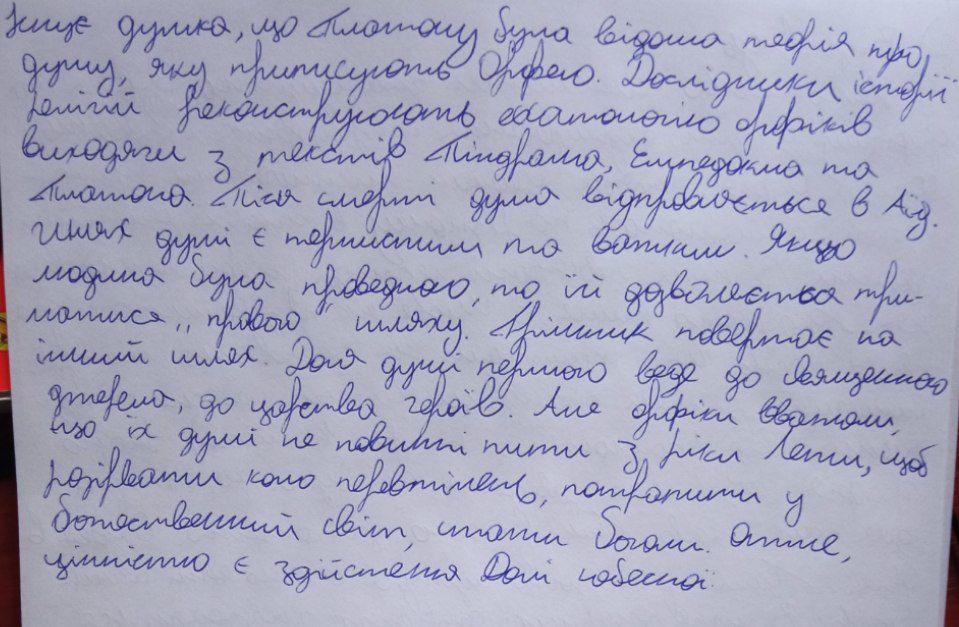 Існує думка, що Платону була відома теорія про
душу, яку приписують Орфею. Дослідники історії
релігії реконструюють есхатологію орфіків
виходячи з текстів Піндара, Емпедокла та
Платона. Після смерті душа відправляється в Аїд.
Шлях душі є тернистим та важким. Якщо
людина була праведною, то їй дозволяється три-
матися „правого" шляху. Грішник повертає на
інший шлях. Доля душі першого веде до священного
джерела, до царства героїв. Але орфіки вважали,
що їх душі не повинні пити з ріки Лети, щоб
розірвати коло перевтілень, потрапити у
божественний світ, стати богами. Отже,
цінністю є здійснення Долі небесної